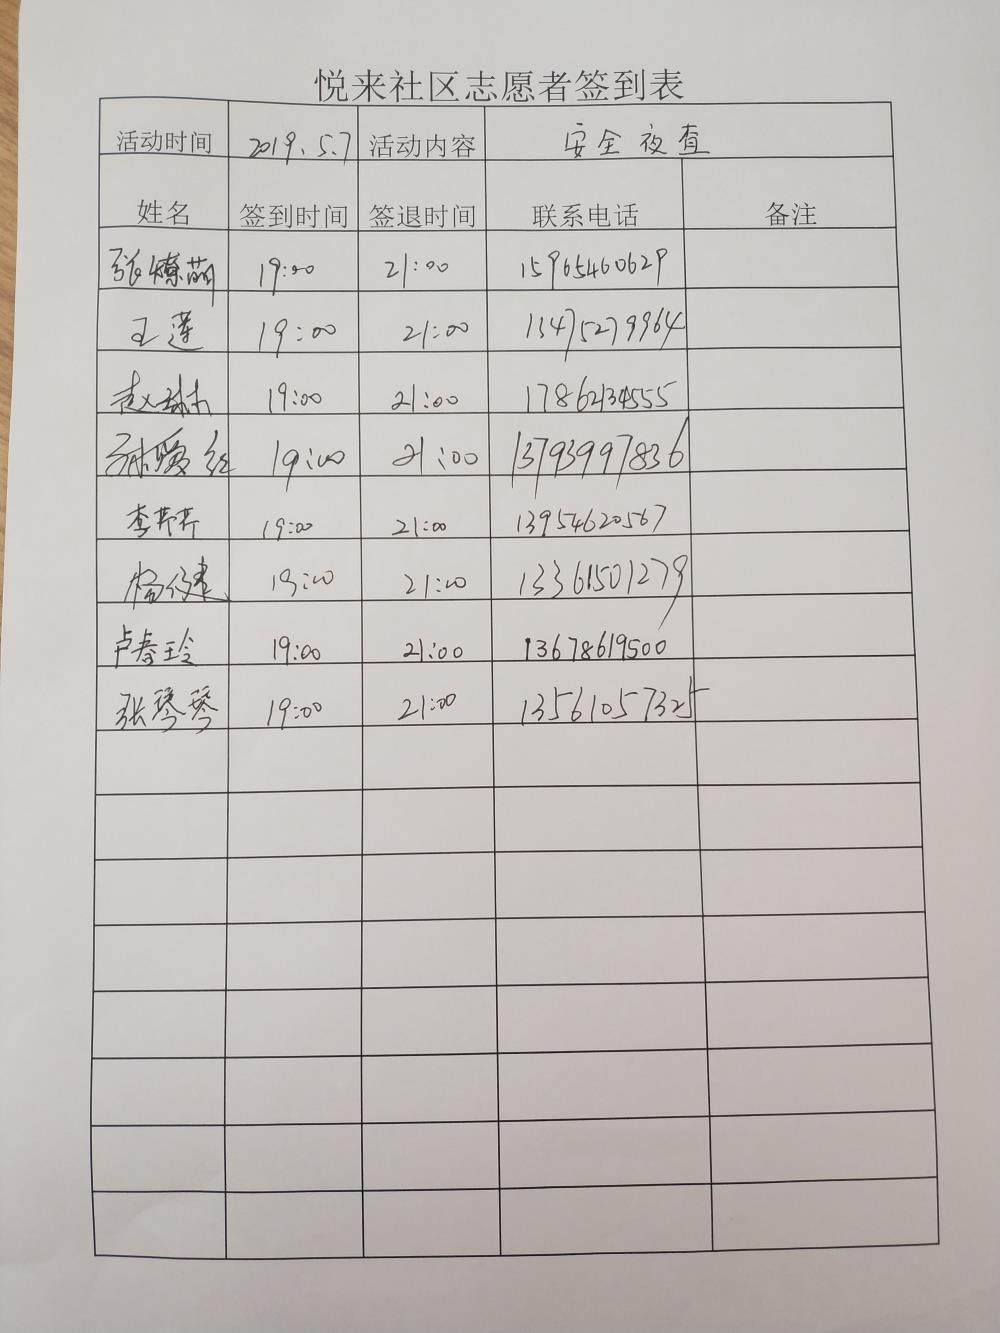 悦来社区志愿者签到表
活动时间 2019.5.7 活动内容 安全夜查
姓名 签到时间 签退时间 联系电话 备注
张燎萌 19:00 21:00 15965460629
王莲 19:00 21:00 13475279964
赵琳杰 19:00 21:00 17862134555
孙爱红 19:00 21:00 13793997836
李芹芹 19:00 21:00 13954620567
杨健 19:00 21:00 13361501279
卢春玲 19:00 21:00 13678619500
张琴琴 19:00 21:00 13561057325